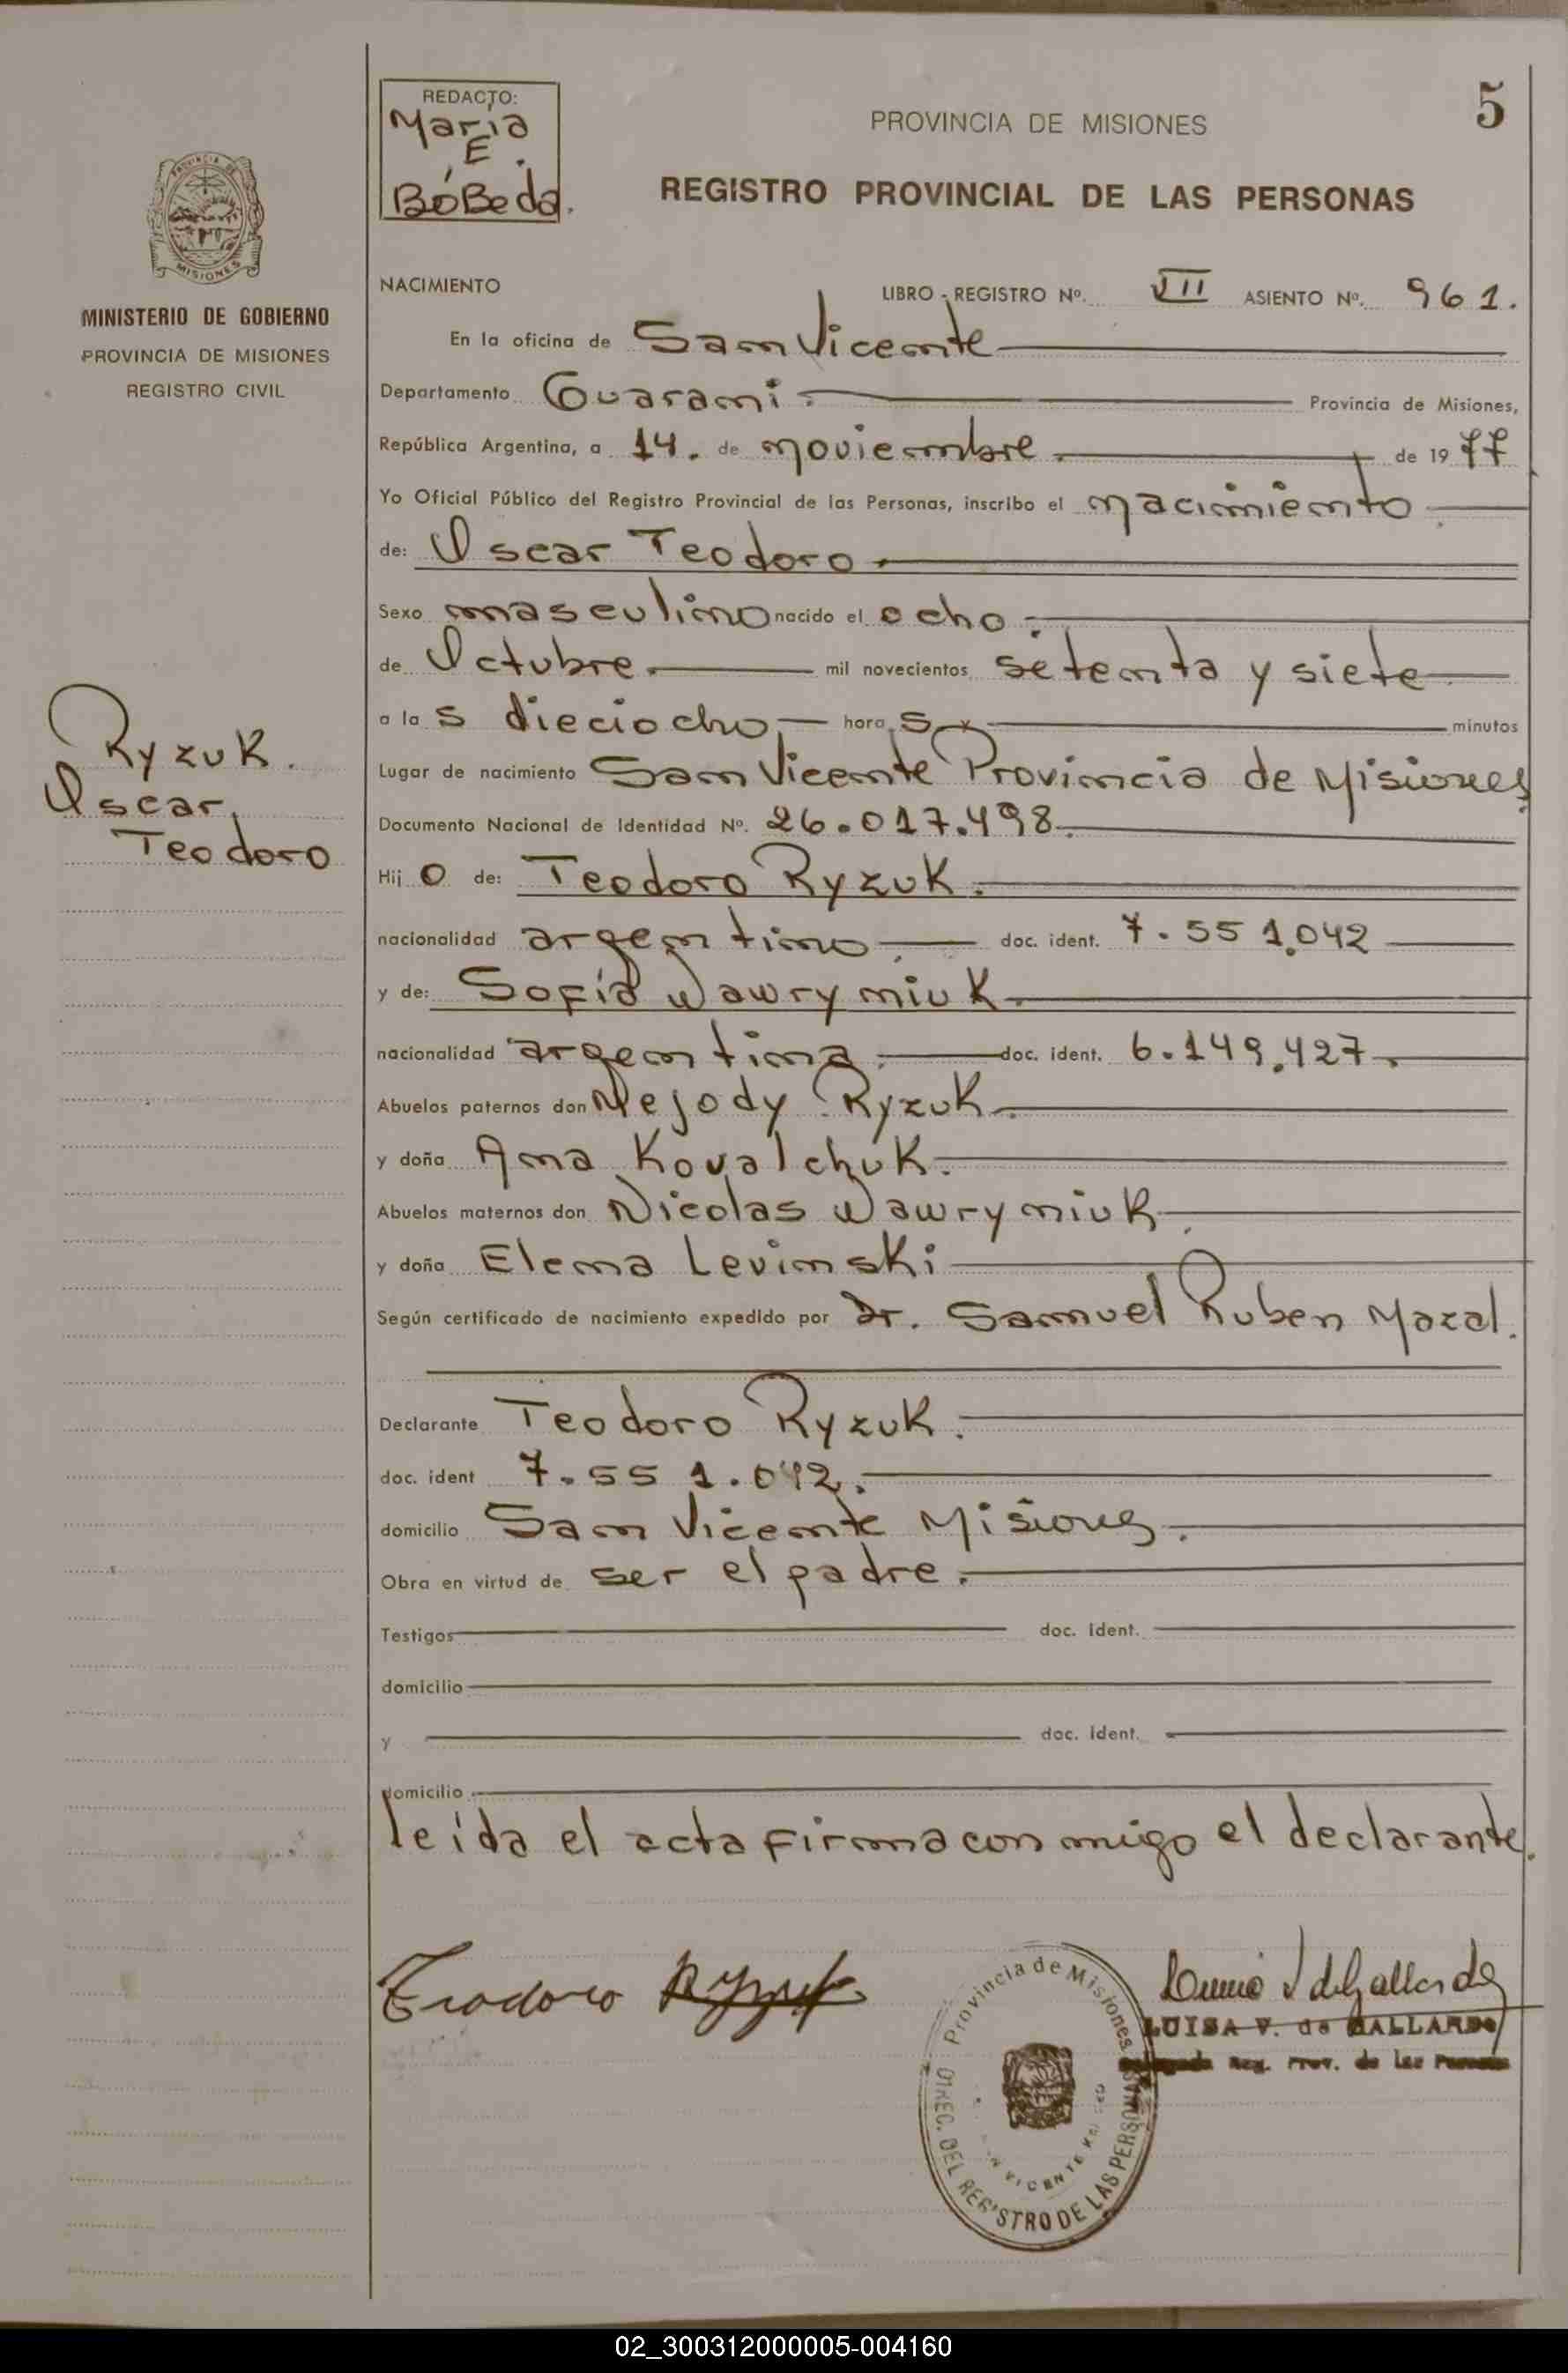 REDACTO:
Maria
E.
BóBeda.
PROVINCIA DE MISIONES
5
REGISTRO PROVINCIAL DE LAS PERSONAS
PROVINCIA DE
MISIONES
MINISTERIO DE GOBIERNO
PROVINCIA DE MISIONES
REGISTRO CIVIL
Ryzuk.
Oscar,
Teodoro
NACIMIENTO LIBRO - REGISTRO Nº. VII ASIENTO Nº. 961.
En la oficina de San Vicente
Departamento Guarani. Provincia de Misiones,
República Argentina, a 14. de noviembre. de 1977
Yo Oficial Público del Registro Provincial de las Personas, inscribo el nacimiento.
de: Oscar Teodoro.
Sexo masculino nacido el ocho.
de Octubre. mil novecientos setenta y siete
a las dieciocho, horas minutos
Lugar de nacimiento San Vicente Provincia de Misiones.
Documento Nacional de Identidad Nº. 26.017.498.
Hijo de: Teodoro Ryzuk.
nacionalidad argentino. doc. ident. 7.551.042
y de: Sofía Wawryniuk.
nacionalidad argentina. doc. ident. 6.149.427.
Abuelos paternos don Mejody Ryzuk.
y doña Ana Kovalchuk.
Abuelos maternos don Nicolas Wawryniuk.
y doña Elena Levinski
Según certificado de nacimiento expedido por Dr. Samuel Ruben Mazal.
Declarante Teodoro Ryzuk.
doc. ident 7.551.042.
domicilio San Vicente Misiones.
Obra en virtud de ser el padre.
Testigos doc. ident.
domicilio
y doc. ident.
domicilio
leída el acta firma con migo el declarante.
Teodoro Ryzuk
Provincia de Misiones
DIREC. DEL REGISTRO DE LAS PERSONAS
VICENTE
LUISA V. de GALLARDO
Reg. Prov. de las
02_300312000005-004160